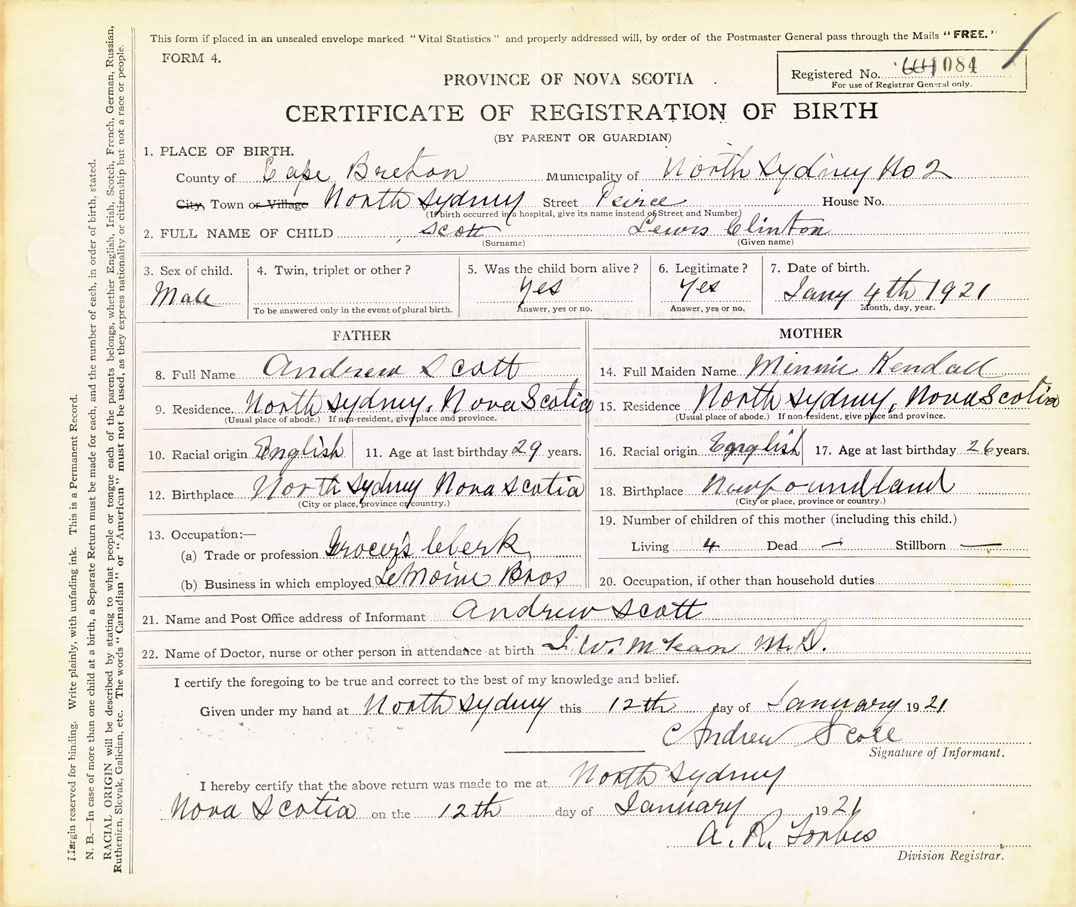 This form if placed in an unsealed envelope marked "Vital Statistics" and properly addressed will, by order of the Postmaster General pass through the Mails "FREE."
FORM 4.
PROVINCE OF NOVA SCOTIA
Registered No. 084
For use of Registrar General only.
CERTIFICATE OF REGISTRATION OF BIRTH
(BY PARENT OR GUARDIAN)
1. PLACE OF BIRTH.
County of Cape Breton Municipality of North Sydney No 2
City, Town or Village North Sydney Street Peirce House No.
(If birth occurred in a hospital, give its name instead of Street and Number)
2. FULL NAME OF CHILD Scott Lewis Clinton
(Surname) (Given name)
3. Sex of child. 4. Twin, triplet or other? 5. Was the child born alive? 6. Legitimate? 7. Date of birth.
Male Yes Yes Jany 4th 1921
To be answered only in the event of plural birth. Answer, yes or no. Answer, yes or no. Month, day, year.
FATHER MOTHER
8. Full Name Andrew Scott 14. Full Maiden Name Minnie Kendall
9. Residence. North Sydney, Nova Scotia 15. Residence North Sydney, Nova Scotia
(Usual place of abode.) If non-resident, give place and province. (Usual place of abode.) If non-resident, give place and province.
10. Racial origin English 11. Age at last birthday 29 years. 16. Racial origin English 17. Age at last birthday 26 years.
12. Birthplace North Sydney Nova Scotia 18. Birthplace Newfoundland
(City or place, province or country.) (City or place, province or country.)
13. Occupation:— 19. Number of children of this mother (including this child.)
(a) Trade or profession Grocer's Clerk Living 4 Dead — Stillborn —
(b) Business in which employed LeMoine Bros 20. Occupation, if other than household duties
21. Name and Post Office address of Informant Andrew Scott
22. Name of Doctor, nurse or other person in attendance at birth J. W. McLean M.D.
I certify the foregoing to be true and correct to the best of my knowledge and belief.
Given under my hand at North Sydney this 12th day of January 1921
Andrew Scott
Signature of Informant.
I hereby certify that the above return was made to me at North Sydney
Nova Scotia on the 12th day of January 1921
A. R. Forbes
Division Registrar.
Margin reserved for binding. Write plainly, with unfading ink. This is a Permanent Record.
N. B.—In case of more than one child at a birth, a Separate Return must be made for each, and the number of each, in order of birth, stated.
RACIAL ORIGIN will be described by stating to what people or tongue each of the parents belongs, whether English, Irish, Scotch, French, German, Russian,
Ruthenian, Slovak, Galician, etc. The words "Canadian" or "American" must not be used, as they express nationality or citizenship but not a race or people.